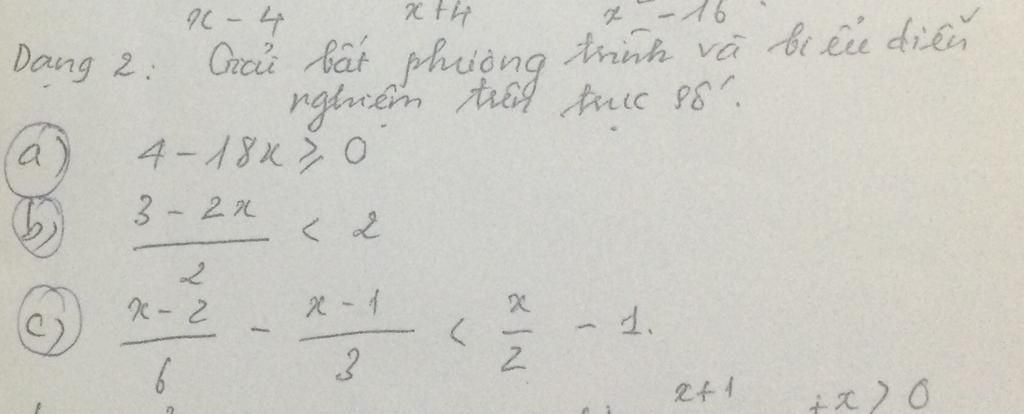 x - 4 x+4 x² - 16
Dạng 2: Giải bất phương trình và biểu diễn
nghiệm trên trục số.
a) 4 - 18x ≥ 0
b) (3 - 2x)/2 < 2
c) (x - 2)/6 - (x - 1)/3 < x/2 - 1.
x+1 +x > 0